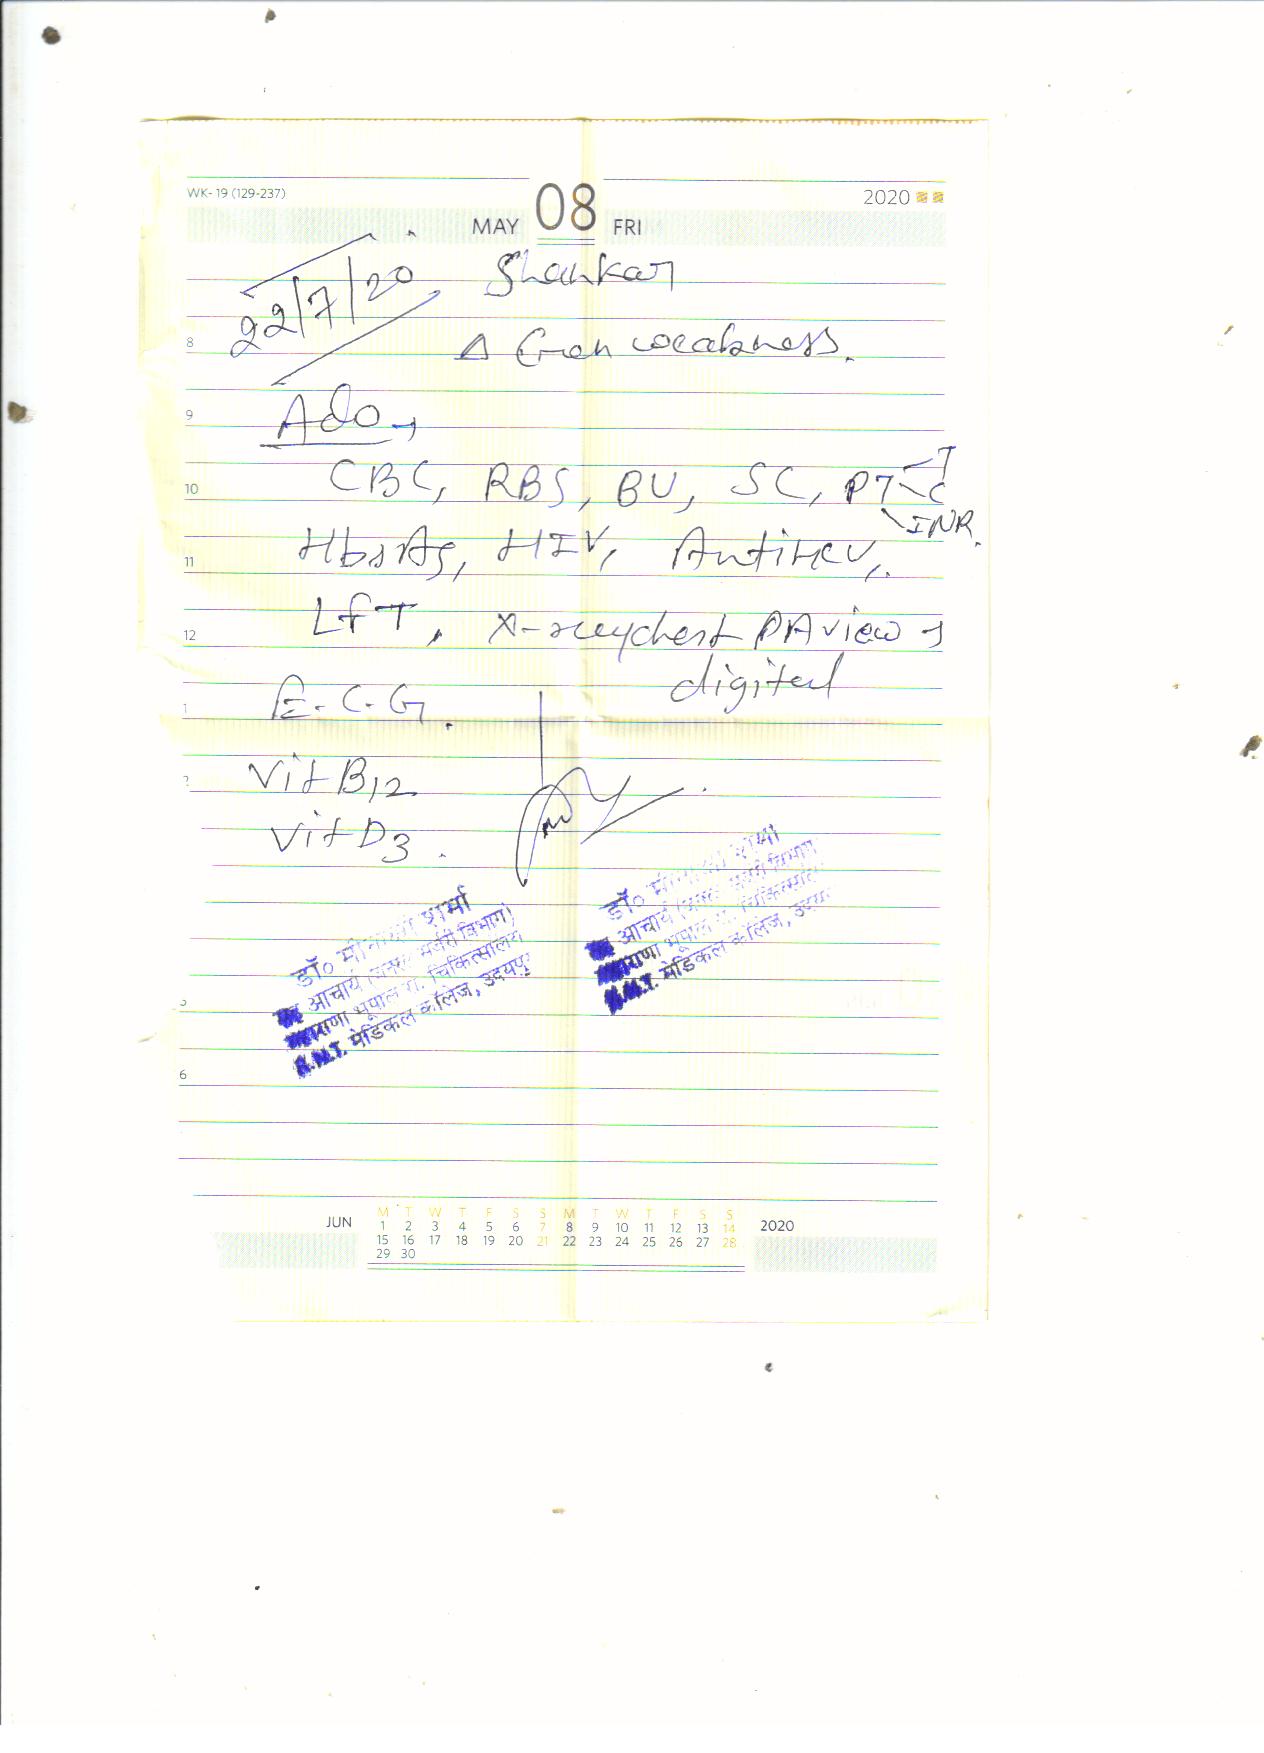 WK- 19 (129-237)
MAY 08 FRI
2020
22/7/20
Shankar
Δ Gen weakness.
8
9 Ado
10 CBC, RBS, BU, SC, PT T
C
INR.
11 HbsAg, HIV, AntiHCV,
12 LFT, X-ray chest PA view
digital
1 E.C.G.
Vit B12
Vit D3
डॉ० शर्मा
आचार्य (जनरल सर्जरी विभाग)
भूपाल रा. चिकित्सालय
R.N.T. मेडिकल कॉलेज, उदयपुर
डॉ० शर्मा
आचार्य सर्जरी विभाग
भूपाल रा. चिकित्सालय
R.N.T. मेडिकल कॉलेज, उदयपुर
6
JUN M T W T F S S M T W T F S S 2020
1 2 3 4 5 6 7 8 9 10 11 12 13 14
15 16 17 18 19 20 21 22 23 24 25 26 27 28
29 30